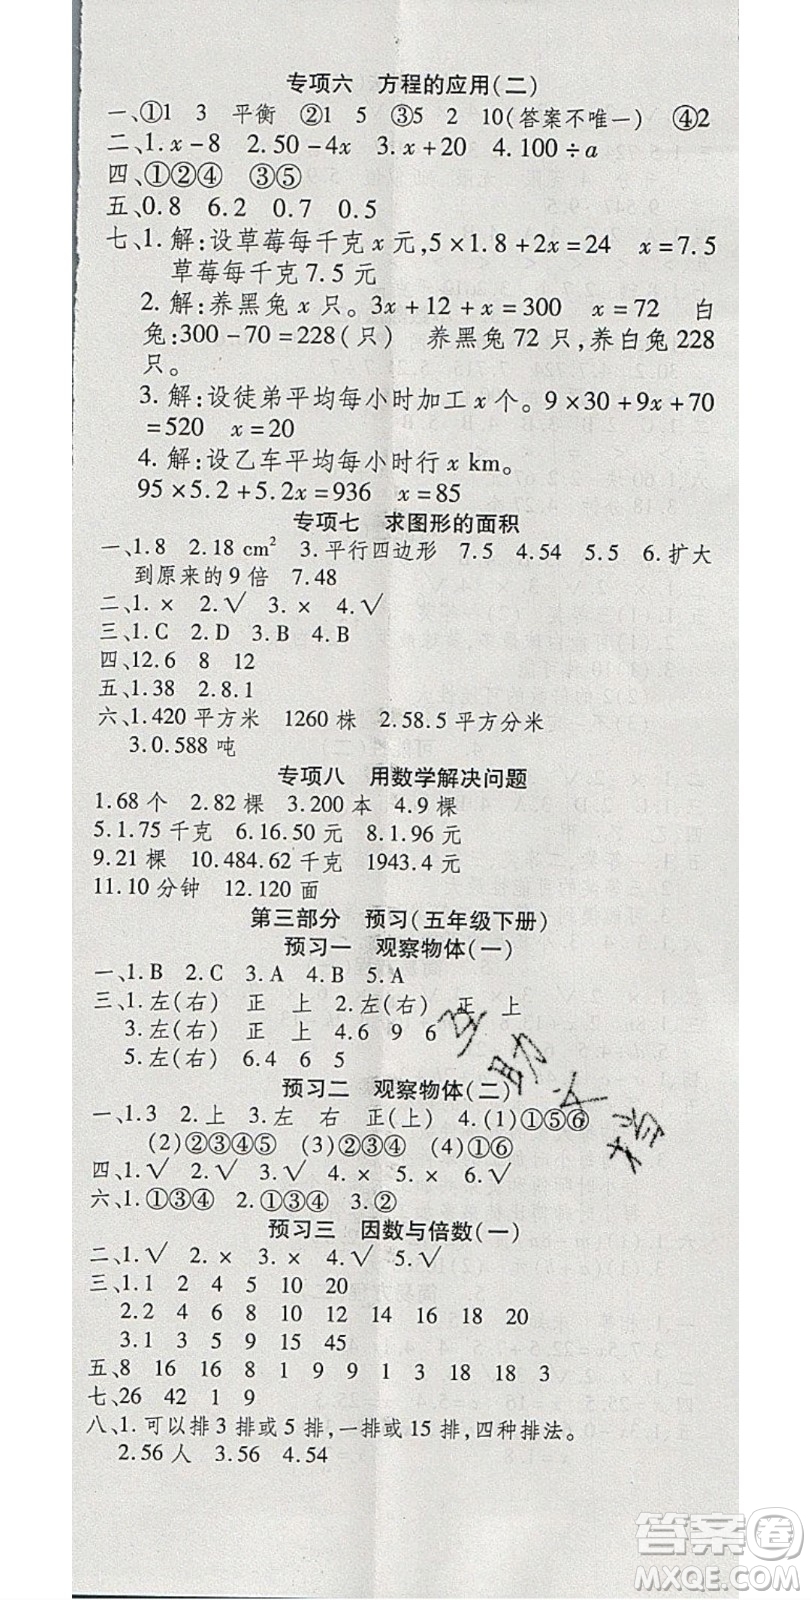 专项六 方程的应用(二)
一、①1 3 平衡 ②1 5 ③5 2 10(答案不唯一) ④2
二、1.x-8 2.50-4x 3.x+20 4.100÷a
四、①②④ ③⑤
五、0.8 6.2 0.7 0.5
七、1.解:设草莓每千克x元,5×1.8+2x=24 x=7.5
草莓每千克7.5元
2.解:养黑兔x只。3x+12+x=300 x=72 白
兔:300-70=228(只) 养黑兔72只,养白兔228
只。
3.解:设徒弟平均每小时加工x个。9×30+9x+70
=520 x=20
4.解:设乙车平均每小时行x km。
95×5.2+5.2x=936 x=85
专项七 求图形的面积
一、1.8 2.18 cm² 3.平行四边形 7.5 4.54 5.5 6.扩大
到原来的9倍 7.48
二、1.× 2.√ 3.× 4.√
三、1.C 2.D 3.B 4.B
四、12.6 8 12
五、1.38 2.8.1
六、1.420平方米 1260株 2.58.5平方分米
3.0.588吨
专项八 用数学解决问题
1.68个 2.82棵 3.200本 4.9棵
5.1.75千克 6.16.50元 8.1.96元
9.21棵 10.484.62千克 1943.4元
11.10分钟 12.120面
第三部分 预习(五年级下册)
预习一 观察物体(一)
一、1.B 2.C 3.A 4.B 5.A
三、1.左(右) 正 上 2.左(右) 正 上
3.左(右) 正 上 4.6 9 6
5.左(右) 6.4 6 5
预习二 观察物体(二)
一、1.3 2.上 3.左 右 正(上) 4.(1)①⑤⑥
(2)②③④⑤ (3)②③④ (4)①⑥
四、1.√ 2.√ 3.√ 4.× 5.× 6.√
六、1.①③④ 2.①③④ 3.②
预习三 因数与倍数(一)
二、1.√ 2.× 3.× 4.√ 5.√
三、1.1 2 4 5 10 20
2.2 4 6 8 10 12 14 16 18 20
3.1 3 5 9 15 45
五、8 16 16 8 1 9 9 1 3 18 18 3
七、26 42 1 9
八、1.可以排3排或5排,一排或15排,四种排法。
2.56人 3.56 4.54
互助文档
答案圈
MXQE.COM